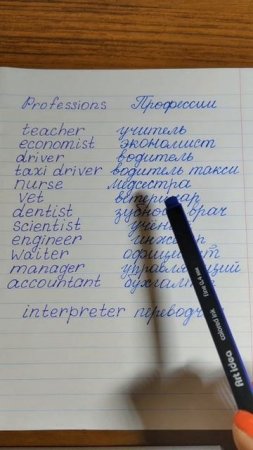 Professions Профессии
teacher учитель
economist экономист
driver водитель
taxi driver водитель такси
nurse медсестра
vet
dentist зубной врач
scientist
engineer
waiter официант
manager
accountant бухгалтер
interpreter
Art idea
colored ink
fine 0.4 mm